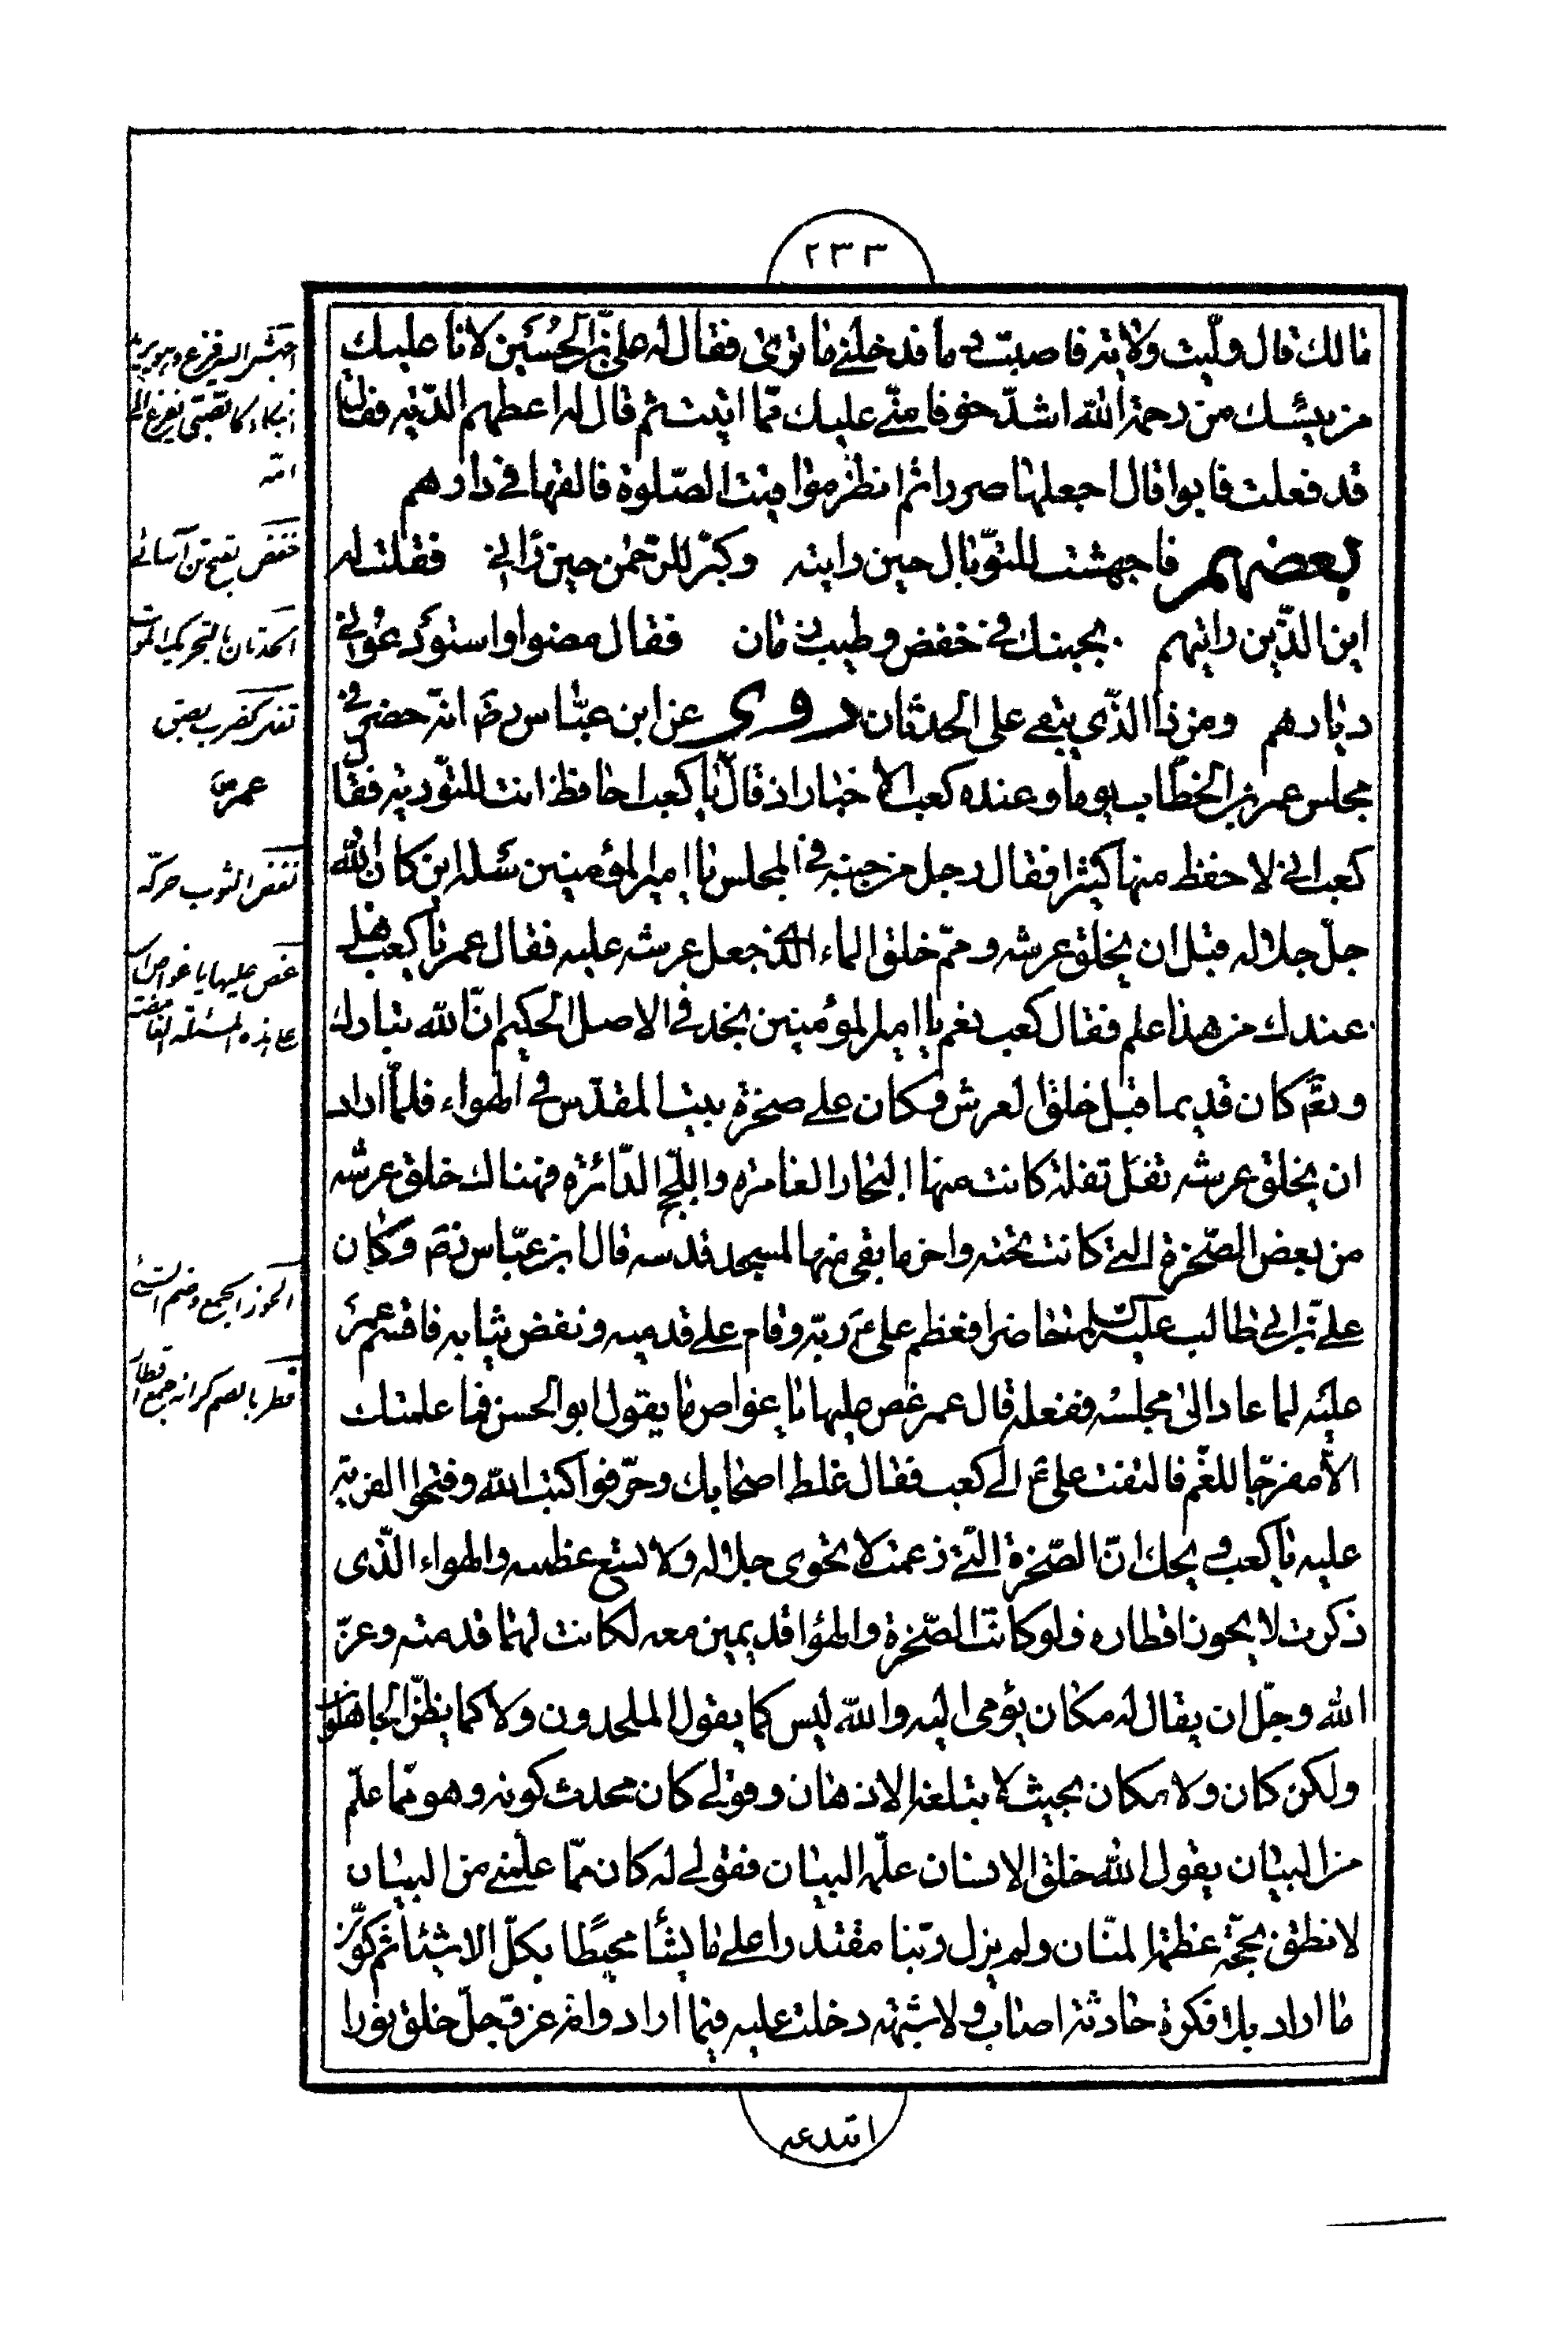 ٢٣٣
مالك قال ولّيت ولاية فاصبت دما قد خلنى ما ترى فقال له علىّ بن الحسين لانا عليك
من يئسك من رحمة الله اشدّ خوفا منّى عليك ممّا اتيت ثم قال له اعطهم الدّية فقال
قد فعلت فابوا قال اجعلها صررا ثم انظر مواقيت الصّلوة فالقها فى دارهم
بعضهم فاجهشت للتّوباد حين رايته وكبّر للرّحمن حين رأنى فقلت له
اين الذّين رايتهم بجنبك فى خفض وطيب زمان فقال مضوا واستودعونى
ديارهم ومن ذا الذّى يبقى على الحدثان روى عن ابن عبّاس رض انّه حضر فى
مجلس عمر بن الخطّاب يوما وعنده كعب الاخبار اذ قال يا كعب احافظ انت للتّورية فقال
كعب انى لاحفظ منها كثيرا فقال رجل من جنبه فى المجلس يا امير المؤمنين سئله اين كان الله
جلّ جلاله قبل ان يخلق عرشه وممّ خلق الماء الذى جعل عرشه عليه فقال عمر يا كعب هل
عندك من هذا علم فقال كعب نعم يا امير المؤمنين نجد فى الاصل الحكيم انّ الله تبارك
وتعالى كان قديما قبل خلق العرش وكان على صخرة بيت المقدّس فى الهواء فلمّا اراد
ان يخلق عرشه تفل تفلة كانت منها البحار الغامرة واللّجج الدّائرة فهناك خلق عرشه
من بعض الصّخرة التى كانت تحته واخر ما بقى منها المسجد قدسه قال ابن عبّاس رض وكان
علىّ بن ابى طالب عليه السلام حاضرا فعظم علىّ ع ربّه وقام على قدميه ونفض ثيابه فاقسم عمر
عليه لما عاد الى مجلسه ففعل قال عمر غص عليها يا غواص ما يقول ابو الحسن فما علمتك
الّا مفرّجا للغّم فالتفت على ع الى كعب فقال غلط اصحابك وحرّفوا كتب الله وفتحوا الفرية
عليه يا كعب ويحك انّ الصّخرة الّتى زعمت لا تحوى جلاله ولا تسع عظمته والهواء الّذى
ذكرت لا يحوز اقطاره ولو كانت الصّخرة والهوا قديمين معه لكانت لهما قدمته وعزّ
الله وجلّ ان يقال له مكان يؤمى اليه والله ليس كما يقول الملحدون ولا كما يظنّ الجاهلون
ولكن كان ولا مكان بحيث لا تبلغه الاذهان وقولى كان محدث كونه وهو ممّا علّم
من البيان يقول الله خلق الانسان علّمه البيان فقولى له كان ممّا علّمنى من البيان
لانطق بحجّة عظمة المنّان ولم يزل ربّنا مقتدرا على ما يشأ محيطا بكلّ الاشيا ثم كوّن
ما اراد بلا فكرة حادثة اصاب ولا شبهة دخلت عليه فيما اراد وانه عزّ وجلّ خلق نورا
تنفر كضرب يضرب
عمر رض
نفض الثوب حركه
غص عليها يا غواص
الحوز الجمع وضم الشئ
قطر بالضم كرانه جمع اقطار
ابتدعه